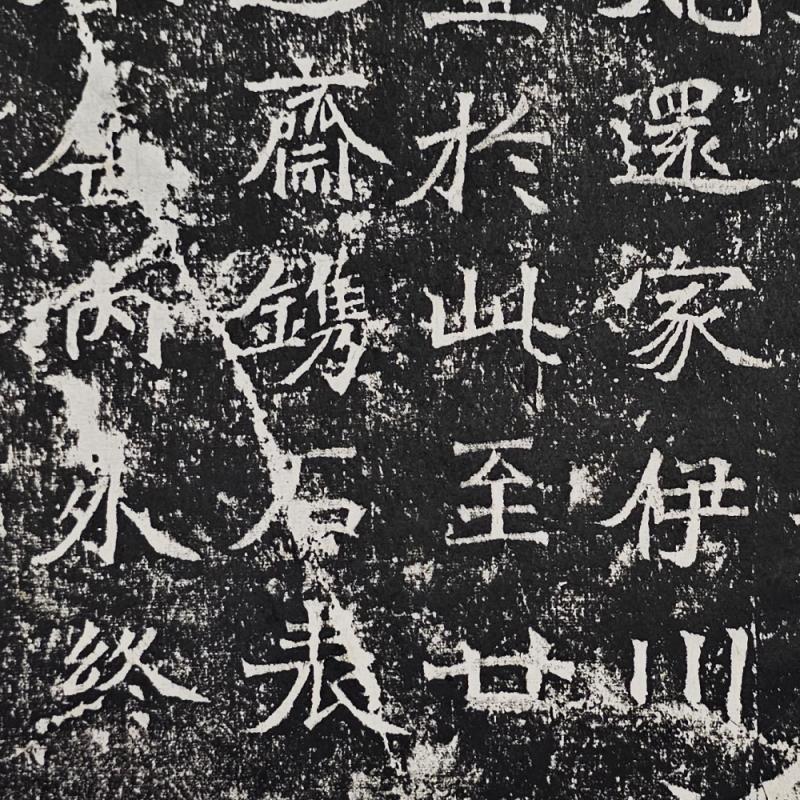 還家伊川
於此至廿
齋鐫石表
丙外終